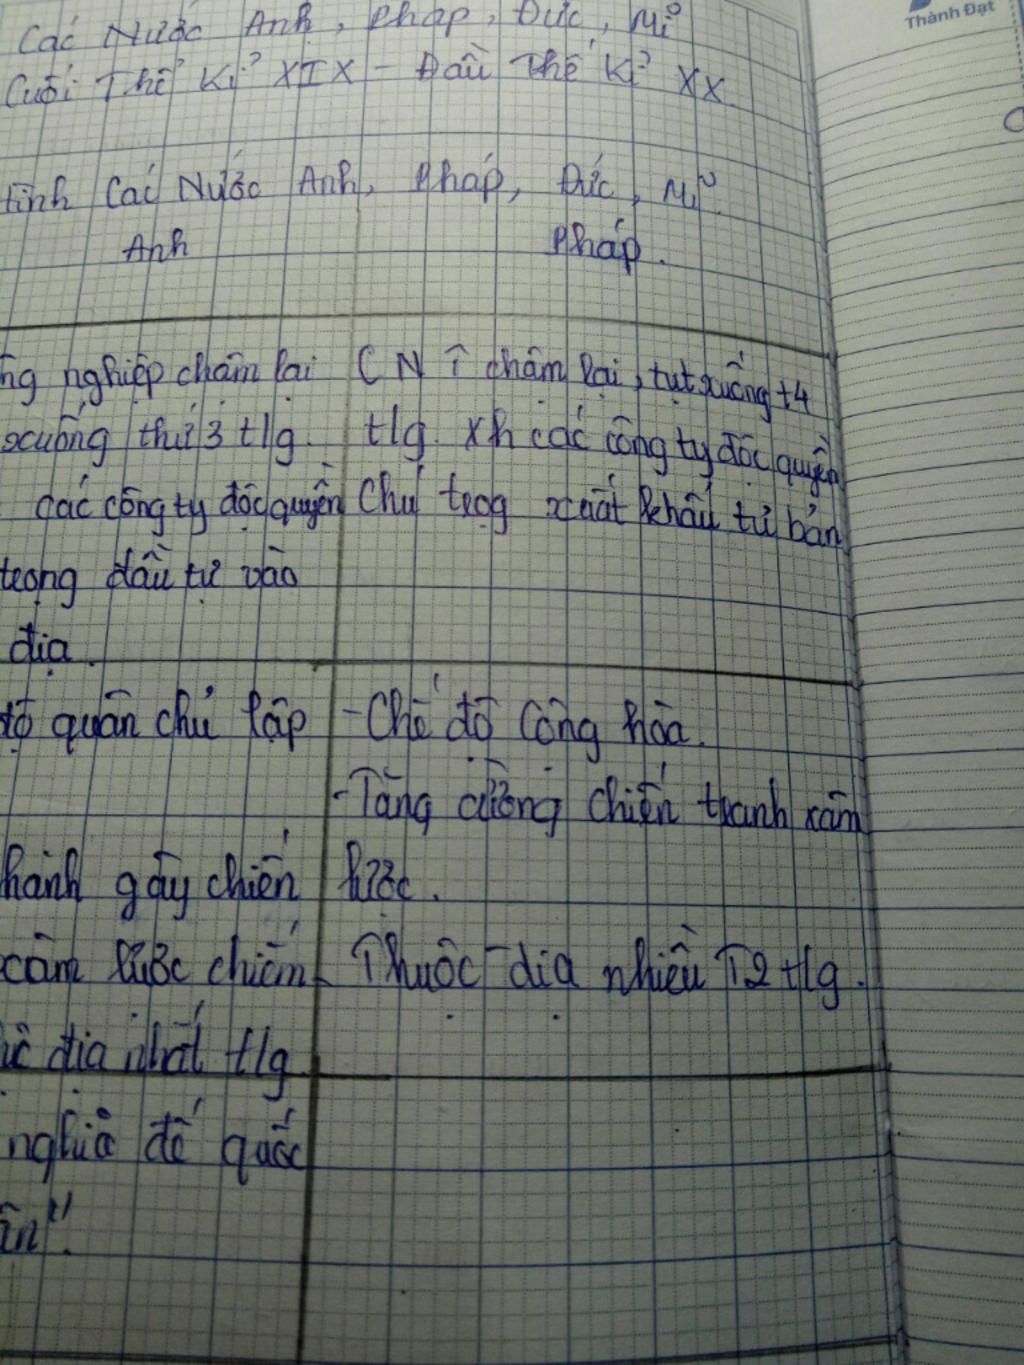 Thành Đạt
Các Nước Anh, Pháp, Đức, Mĩ
Cuối Thế Kỉ XIX - Đầu Thế Kỉ XX.
tình Các Nước Anh, Pháp, Đức, Mĩ.
Anh Pháp.
nghiệp chậm lại CN chậm lại, tụt xuống t4
xuống thứ 3 tlg. tlg. Xh các công ty độc quyền
các công ty độc quyền Chú trọg xuất khẩu tư bản
trọng đầu tư vào
địa.
độ quân chủ lập - Chế độ Cộng hòa.
- Tăng cường chiến tranh xâm
hành gây chiến lược.
xâm lược chiếm - Thuộc địa nhiều T2 tlg.
địa nhất tlg
nghĩa đế quốc